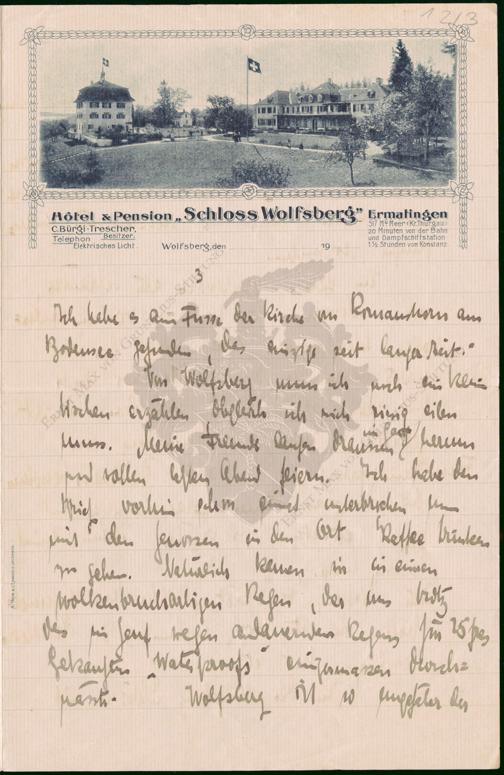 12/3
Hôtel & Pension „Schloss Wolfsberg” Ermatingen
C. Bürgi-Trescher,
Besitzer.
Telephon
Elektrisches Licht
517 Mtr Meer (Kt. Thurgau)
20 Minuten von der Bahn
und Dampfschiffstation
1½ Stunden von Konstanz.
Wolfsberg, den 19
3
Ich habe es am Fusse der Kirche von Romanshorn am
Bodensee gefunden, das einzige seit langer Zeit.
Von Wolfsberg muss ich noch ein klein
bischen erzählen, obgleich ich mich eilen
muss. Meine Freunde draussen herum
und wollen letzten Abend feiern. Ich habe den
Brief vorhin schon einmal unterbrochen um
mit den Genossen in den Ort Kaffee trinken
zu gehen. Natürlich kamen wir in einen
wolkenbruchartigen Regen, der uns trotz
des in Genf wegen andauernden Regens für 25 frs
gekauften „Waterproofs” einigermassen durch=
nässte. Wolfsberg ist so ungefähr der